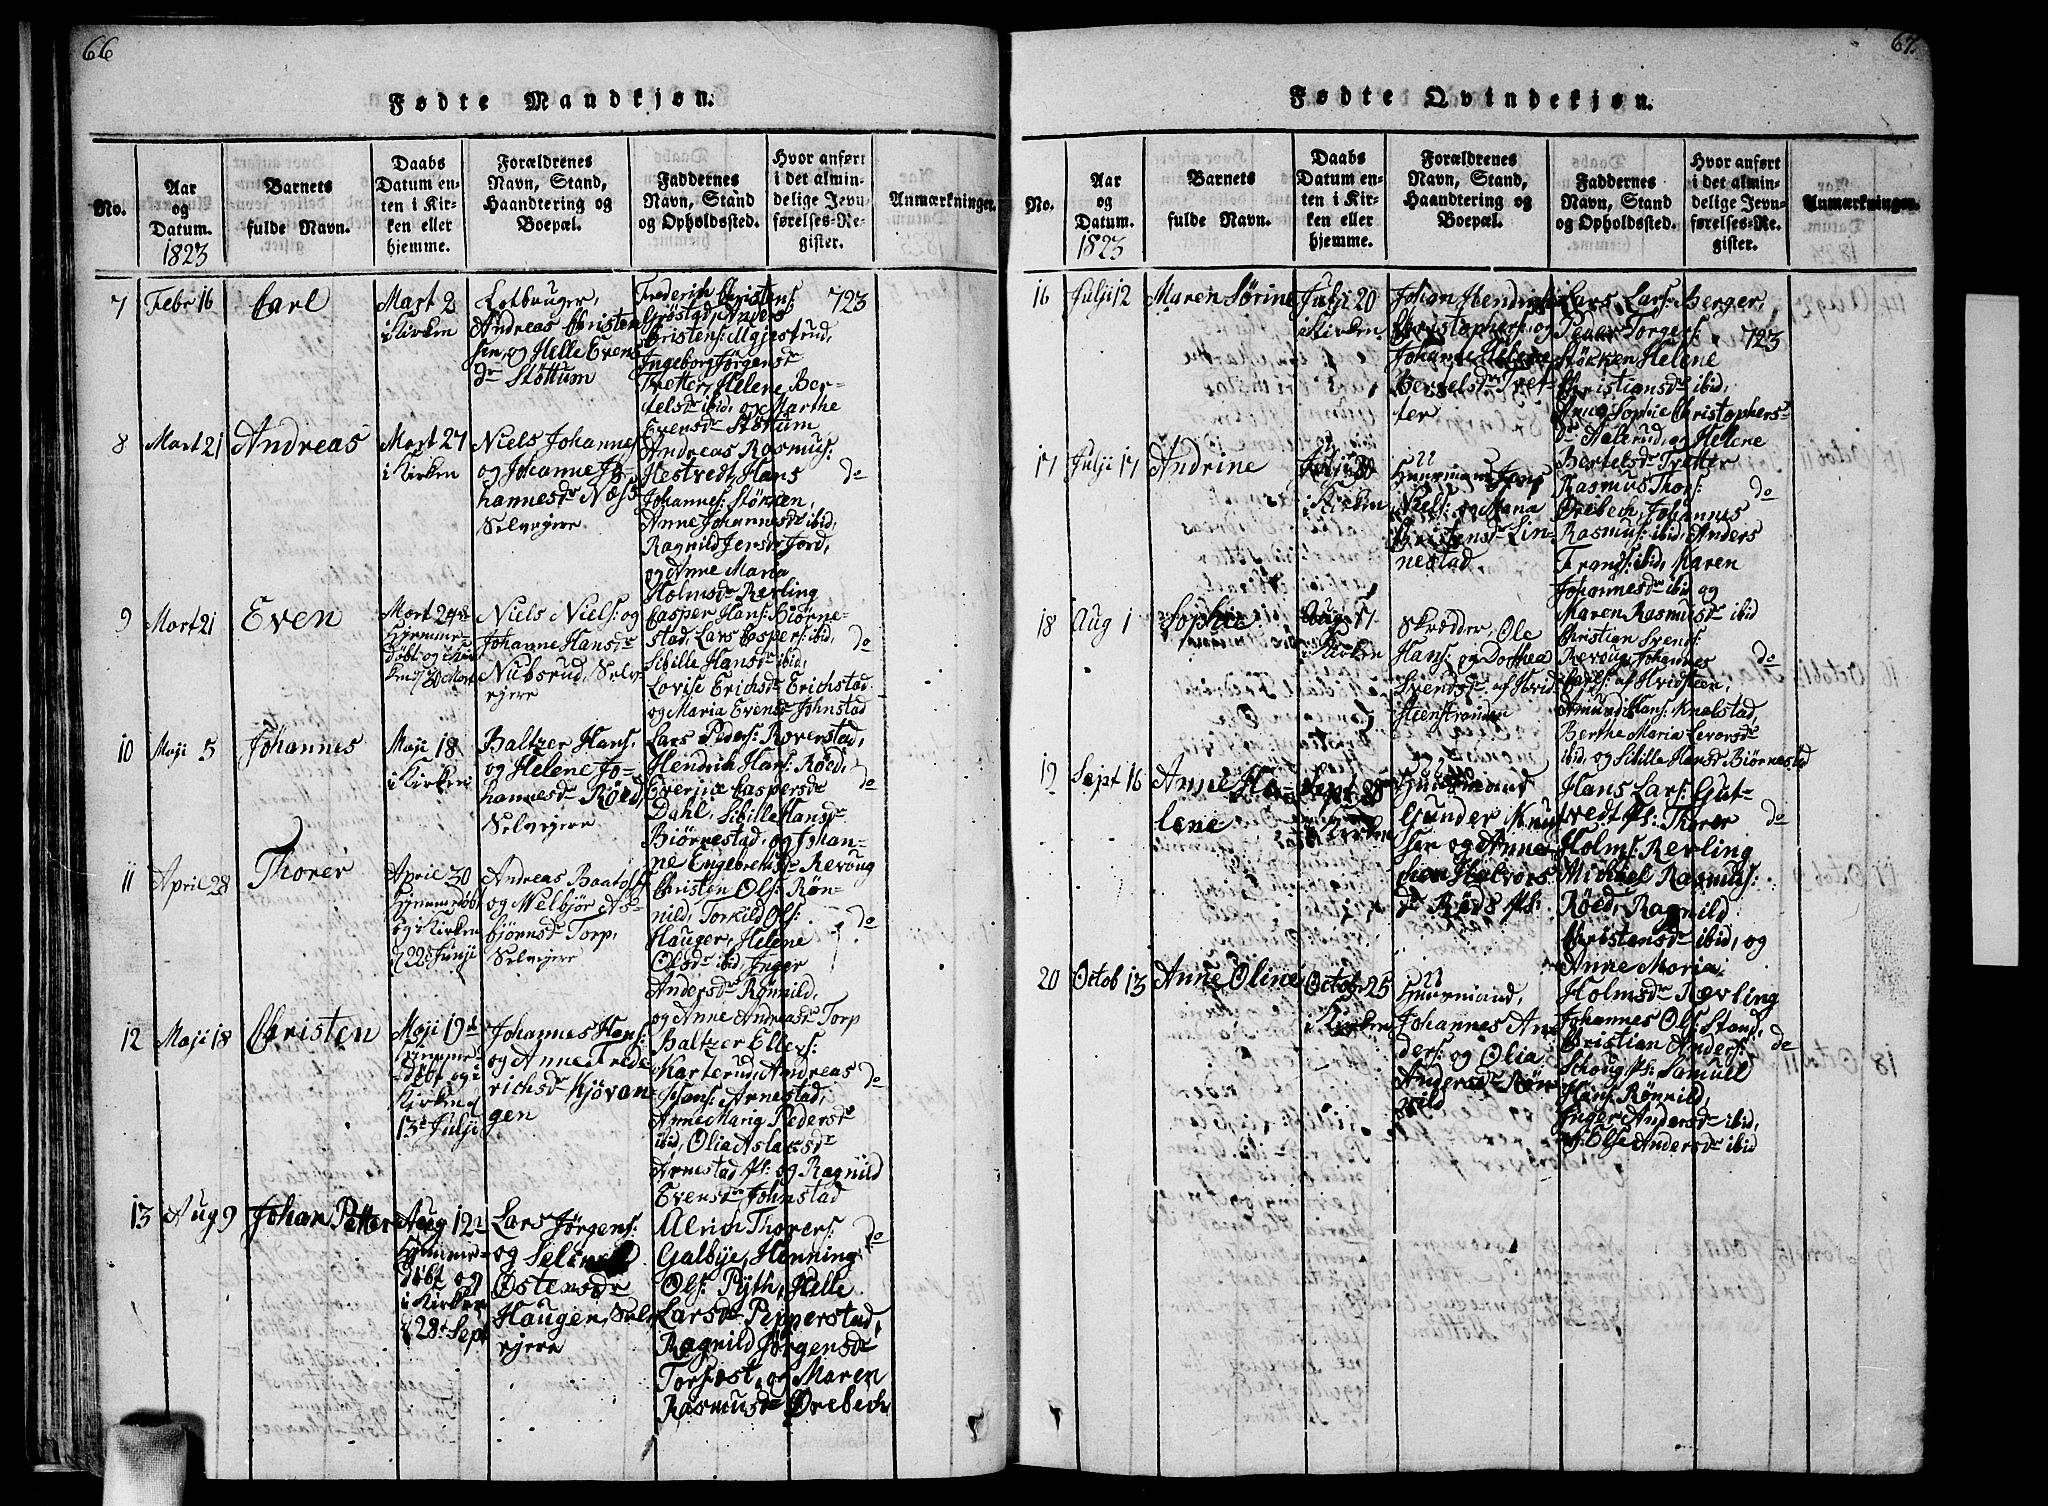 66
Fødte Mandkjøn.
No.
Aar
og
Datum.
1823
Barnets
fulde Navn.
Daabs
Datum en-
ten i Kir-
ken eller
hjemme.
Forældrenes
Navn, Stand,
Haandtering og
Boepæl.
Faddernes
Navn, Stand
og Opholdssted.
Hvor anført
i det almin-
delige Jevn-
førelses-Re-
gister.
Anmærkninger.
7
Febr 16
Carl
Mart 2
i Kirken
Leibruger,
Andreas Christen
sen, og Helle Evens
dr Støttum
Frederich Christens:
Grøstad, Anders
Christens: Majestrud,
Ingeborg Jørgensdr
Tretter, Helene Ber-
telsdr ibid, og Marthe
Evensdr Støttum
723
8
Mart 21
Andreas
Mart 27
i Kirken
Niels Johannes
og Johanne Jo-
hannesdr Næss
Selvejere
Andreas Rasmus:
Hestvedt, Hans
Johannes: Størken,
Anne Johannesdr ibid,
Ragnild Jensdr Jord,
og Anne Maria
Holmsdr Revling
do
9
Mart 21
Even
Mart 24de
hjemme-
døbt og i Kir
ken 30 Mart
Niels Niels: og
Johanne Hansdr
Nubsrud, Selv-
ejere
Casper Hans: Biørne-
stad, Lars Caspers: ibid,
Sibille Hansdr ibid,
Lovise Erichsdr Erichstad
og Maria Evensdr Johnstad
do
10
Maji 5
Johannes
Maji 18
i Kirken
Baltzer Hans:
og Helene Jo-
hannesdr Røed,
Selvejere
Lars Peders: Roverstad,
Hendrich Hans: Røed,
Everine Caspersdr
Dahl, Sibille Hansdr
Biørnestad, og Johan-
ne Engebrethsdr Revoug
do
11
April 28
Thorer
April 30
hjemmedøbt
og i Kirken
d 22 Junji
Andreas Baatolfs
og Welbjør As-
bjørnsdr Torp,
Selvejere
Christen Ols: Røn-
nild, Torkild Ols:
Hauger, Helene
Olsdr ibid, Inger
Andersdr Rønnild,
og Anne Andreasdr Torp
do
12
Maji 18
Christen
Maji 19de
hjemme-
døbt og i
Kirken d
13de Julji
Johannes Hans:
og Anne Frede
richsdr Kjøvan
gen
Baltzer Ellers:
Karterud, Andreas
Hans: Arnestad,
Anne Marie Pedersdr
ibid, Olia Aslaksdr
Arnestad ps: og Ragnild
Evensdr Johnstad
do
13
Aug 9
Johan Petter
Aug 12
hjemme-
døbt og
i Kirken
d 28de Sept
Lars Jørgens:
og Seline
Østensdr
Haugen, Selv
ejere
Alrich Thorers:
Galbye, Henning
Ols: Pÿth, Helle
Larsdr Pepperstad,
Ragnild Jørgensdr
Torsæst, og Maren
Rasmusdr Ørebech
do
67.
Fødte Qvindekjøn.
No.
Aar
og
Datum.
1823
Barnets
fulde Navn.
Daabs
Datum en-
ten i Kir-
ken eller
hjemme.
Forældrenes
Navn, Stand,
Haandtering og
Boepæl.
Faddernes
Navn, Stand
og Opholdssted.
Hvor anført
i det almin-
delige Jevn-
førelses-Re-
gister.
Anmærkninger.
16
Julji 12
Maren Sørine
Julji 20
i Kirken
Johan Hendrich
Christophers: og
Johanne Helene
Bertelsdr Tret-
ter
Lars Lars: Berger,
Peder Torgers:
Støkken, Helene
Christiansdr ibid,
Anne Sophie Christophers-
dr Aalerud, og Helene
Bertelsdr Tretter
723
17
Julji 17
Andrine
Julji 20
i Kirken
Huusmand Jens
Niels: og Maria
Christensdr Lin-
nestad
Rasmus Thors:
Ørebech, Johannes
Rasmus: ibid, Anders
Frands: ibid, Karen
Johannesdr ibid og
Maren Rasmusdr ibid
do
18
Aug 1
Sophie
Aug 17
i Kirken
Skrædder, Ole
Hans: og Dorthea
Svendsdr af Hvid
steenstranden
Christian Svends:
Revoug, Johannes
Carls: af Hvidsteen,
Amund Hans: Knalstad,
Berthe Maria Levorsdr
ibid, og Sibille Hansdr Biørnestad
do
19
Sept 16
Anne He-
lene
Sept 28
i Kirken
Huusmand
Gunder Knud
sen og Anne
Halvors
dr Røds ps:
Hans Lars: Gut-
vedt ps: Thorer
Holms: Revling
Michael Rasmus:
Røed, Ragnild
Christensdr ibid, og
Anne Maria
Holmsdr Revling
do
20
Octob 13
Anne Oline
Octob 25
i Kirken
Huusmand,
Johannes An
ders: og Olia
Andersdr Røn
nild
Johannes Ols: Stand,
Christian Anders:
Schoug ps: Samuel
Hans: Rønnild,
Inger Andersdr ibid,
og Else Andersdr ibid
do